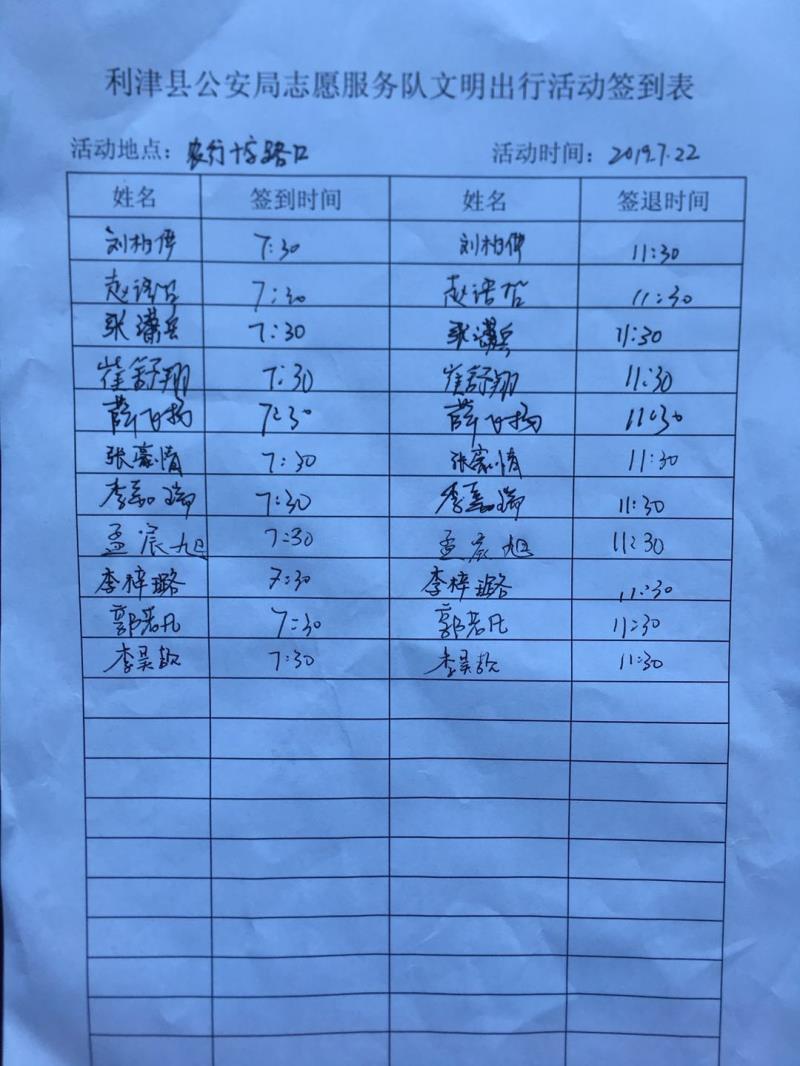 利津县公安局志愿服务队文明出行活动签到表
活动地点：农行十字路口 活动时间：2019.7.22
姓名 签到时间 姓名 签退时间
刘柏伟 7:30 刘柏伟 11:30
赵 7:30 赵 11:30
张潇兵 7:30 张潇兵 11:30
崔舒翔 7:30 崔舒翔 11:30
薛飞扬 7:30 薛飞扬 11:30
张豪情 7:30 张豪情 11:30
李嘉瑞 7:30 李嘉瑞 11:30
孟宸旭 7:30 孟宸旭 11:30
李梓璐 7:30 李梓璐 11:30
郭若凡 7:30 郭若凡 11:30
李昊歆 7:30 李昊歆 11:30